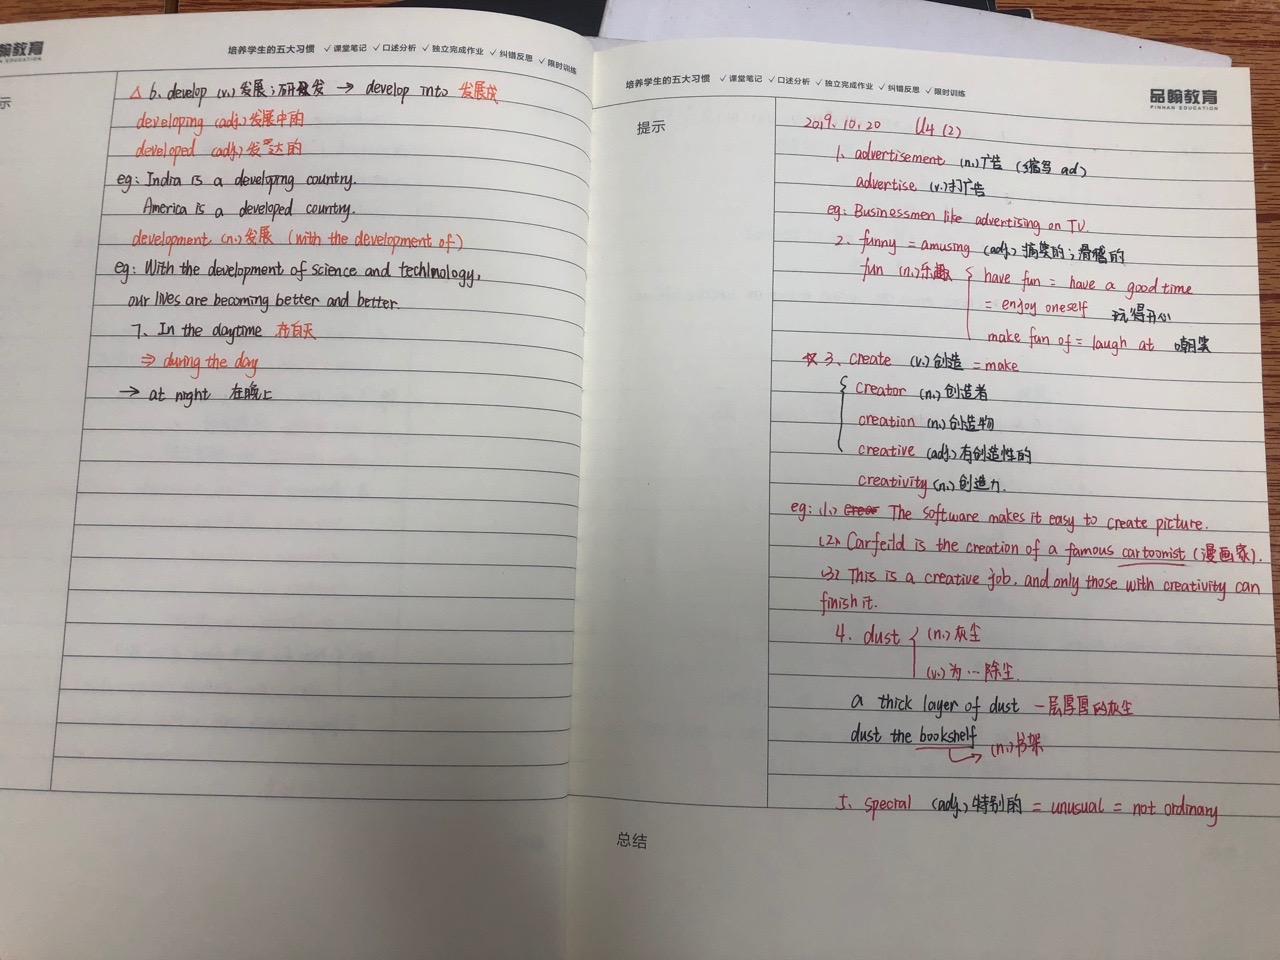 翰教育
EDUCATION
培养学生的五大习惯 ✓课堂笔记 ✓口述分析 ✓独立完成作业 ✓纠错反思 ✓限时训练
示
△ 6. develop (v.) 发展；研发 → develop into 发展成
developing (adj.) 发展中的
developed (adj.) 发达的
eg: India is a developing country.
America is a developed country.
development (n.) 发展 (with the development of)
eg: With the development of science and techlnology,
our lives are becoming better and better.
7. In the daytime 在白天
⇒ during the day
→ at night 在晚上
培养学生的五大习惯 ✓课堂笔记 ✓口述分析 ✓独立完成作业 ✓纠错反思 ✓限时训练
品翰教育
PINHAN EDUCATION
提示
2019.10.20 U4 (2)
1. advertisement (n.) 广告 (缩写 ad)
advertise (v.) 打广告
eg: Businessmen like advertising on TV.
2. funny = amusing (adj.) 搞笑的；滑稽的
fun (n.) 乐趣 { have fun = have a good time
= enjoy oneself 玩得开心
make fun of = laugh at 嘲笑
☆ 3. create (v.) 创造 = make
{ creator (n.) 创造者
creation (n.) 创造物
creative (adj.) 有创造性的
creativity (n.) 创造力.
eg: (1) The software makes it easy to create picture.
(2) Carfeild is the creation of a famous cartoonist (漫画家).
(3) This is a creative job, and only those with creativity can
finish it.
4. dust { (n.) 灰尘
(v.) 为…除尘.
a thick layer of dust 一层厚厚的灰尘
dust the bookshelf
→ (n.) 书架
5. special (adj.) 特别的 = unusual = not ordinary
总结